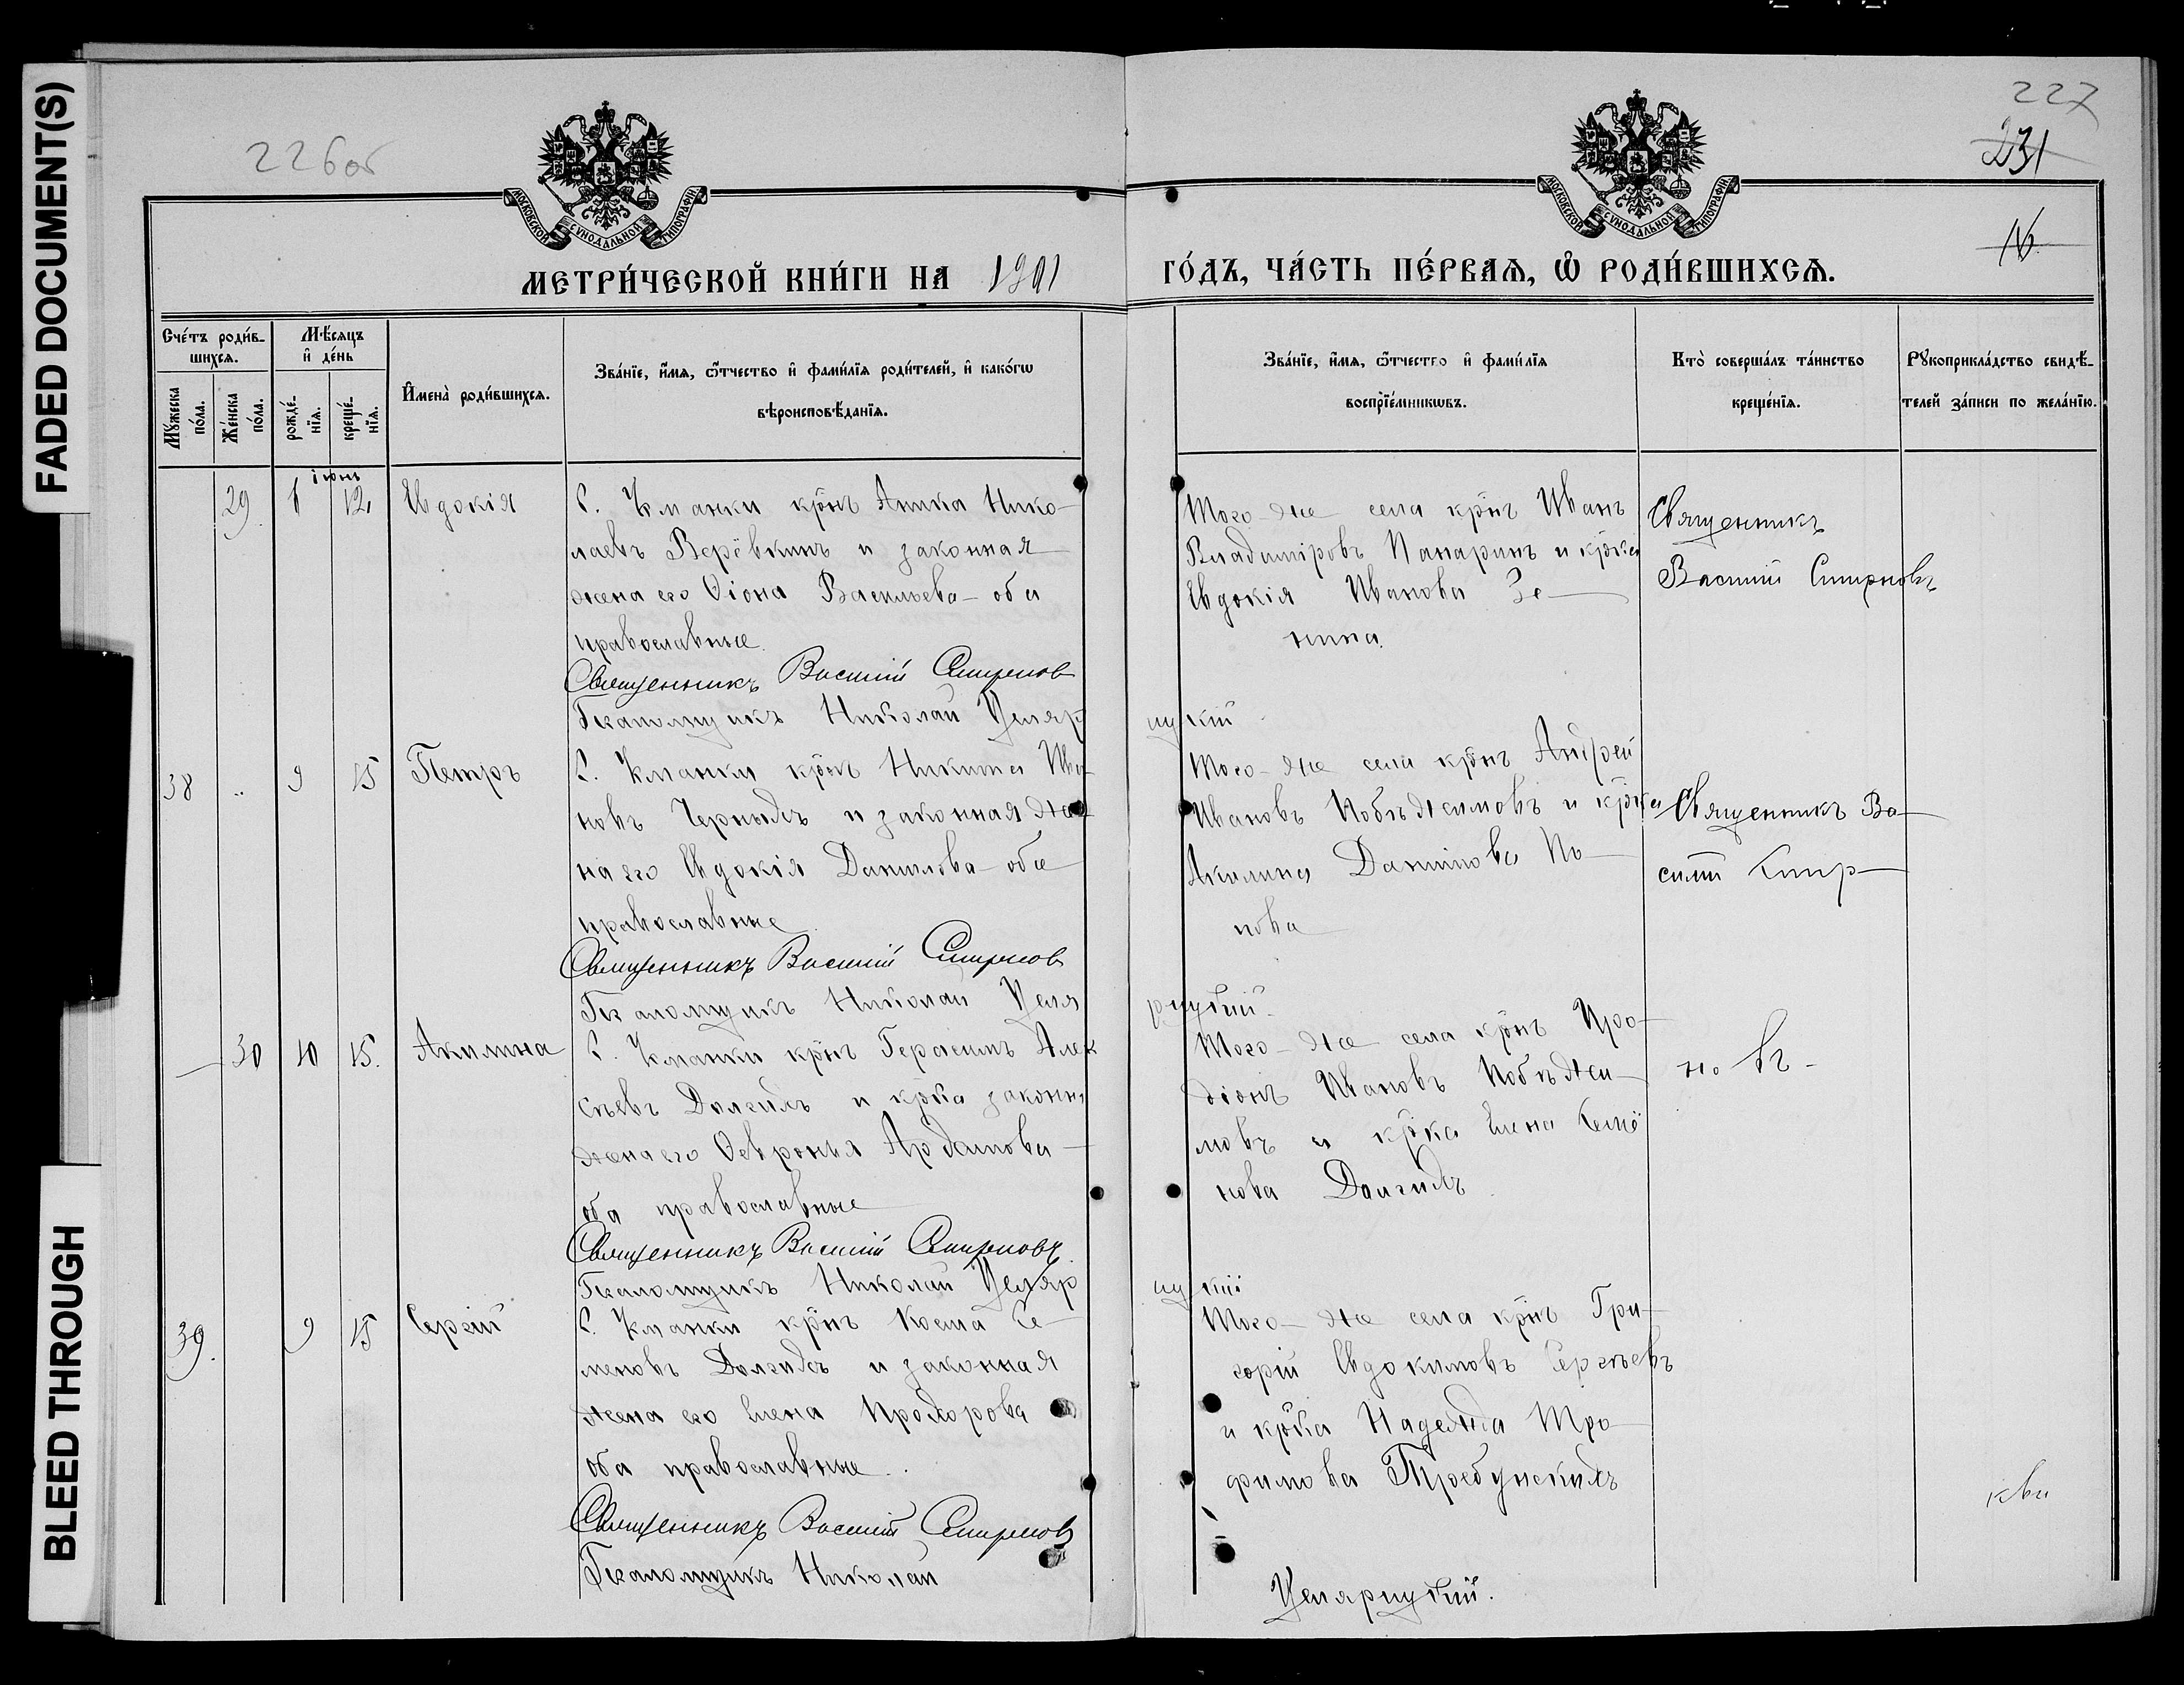 FADED DOCUMENT(S)
BLEED THROUGH
226об
227
231
16
МОСКОВСКОЙ СѴНОДАЛЬНОЙ ТИПОГРАФІИ
МОСКОВСКОЙ СѴНОДАЛЬНОЙ ТИПОГРАФІИ
МЕТРИ́ЧЕСКОЙ КНИ́ГИ НА 1901
ГО́ДЪ, ЧА́СТЬ ПЕ́РВАѦ, Ѡ҆ РОДИ́ВШИХСѦ.
Сче́тъ роди́в-
шихсѧ.
Мꙋ́жеска по́ла.
Же́нска по́ла.
Мѣ́сѧцъ
и҆ де́нь
рожде́-
нїѧ.
креще́-
нїѧ.
И҆мена̀ роди́вшихсѧ.
Зва́нїе, и҆́мѧ, ѻ҆́тчество и҆ фами́лїѧ роди́телей, и҆ како́гѡ
вѣроисповѣ́данїѧ.
Зва́нїе, и҆́мѧ, ѻ҆́тчество и҆ фами́лїѧ
воспрїе́мникѡвъ.
Кто̀ соверша́лъ та́инство
креще́нїѧ.
Рꙋкоприкла́дство свидѣ́-
телей за́писи по жела́нїю.
іюнь
29 12 Евдокія
С. Кманки крнъ Аника Нико-
лаевъ Верёвкинъ и законная
жена его Ѳіона Васильева оба
православные.
Священникъ Василій Смирнов
Псаломщикъ Николай Целяр
Того-же села крнъ Иванъ
Владиміровъ Панаринъ и крка
Евдокія Иванова Зе-
нина.
цкій
Священникъ
Василій Смирновъ
38 „ 9 15 Петръ
С. Кманки крнъ Никита Ива-
новъ Черныхъ и законная же-
на его Евдокія Данилова оба
православные
Священникъ Василій Смирнов
Псаломщикъ Николай Целя
Того-же села крнъ Андрей
Ивановъ Побѣжимовъ и крка
Акилина Данилова По-
пова
рицкій.
Священникъ Ва-
силій Смир-
30 10 15. Акилина
С. Кманки крнъ Герасимъ Алек
сѣевъ Долгихъ и крка законн
жена его Ѳевронья Ардамова
оба православные
Священникъ Василій Смирновъ.
Псаломщикъ Николай Целяр
Того-же села крнъ Иро-
діонъ Ивановъ Побѣжи-
мовъ и крка Елена Семё
нова Долгихъ
цкій
новъ-
39. 9 15 Сергій
С. Кманки крнъ Косма Се-
меновъ Долгихъ и законная
жена его Елена Прохорова
оба православные.
Священникъ Василій Смирнов
Псаломщикъ Николай
Того-же села крнъ Гри-
горій Евдокимовъ Сергѣевъ
и крка Надежда Тро-
фимова Требунскихъ
Целярицкій.